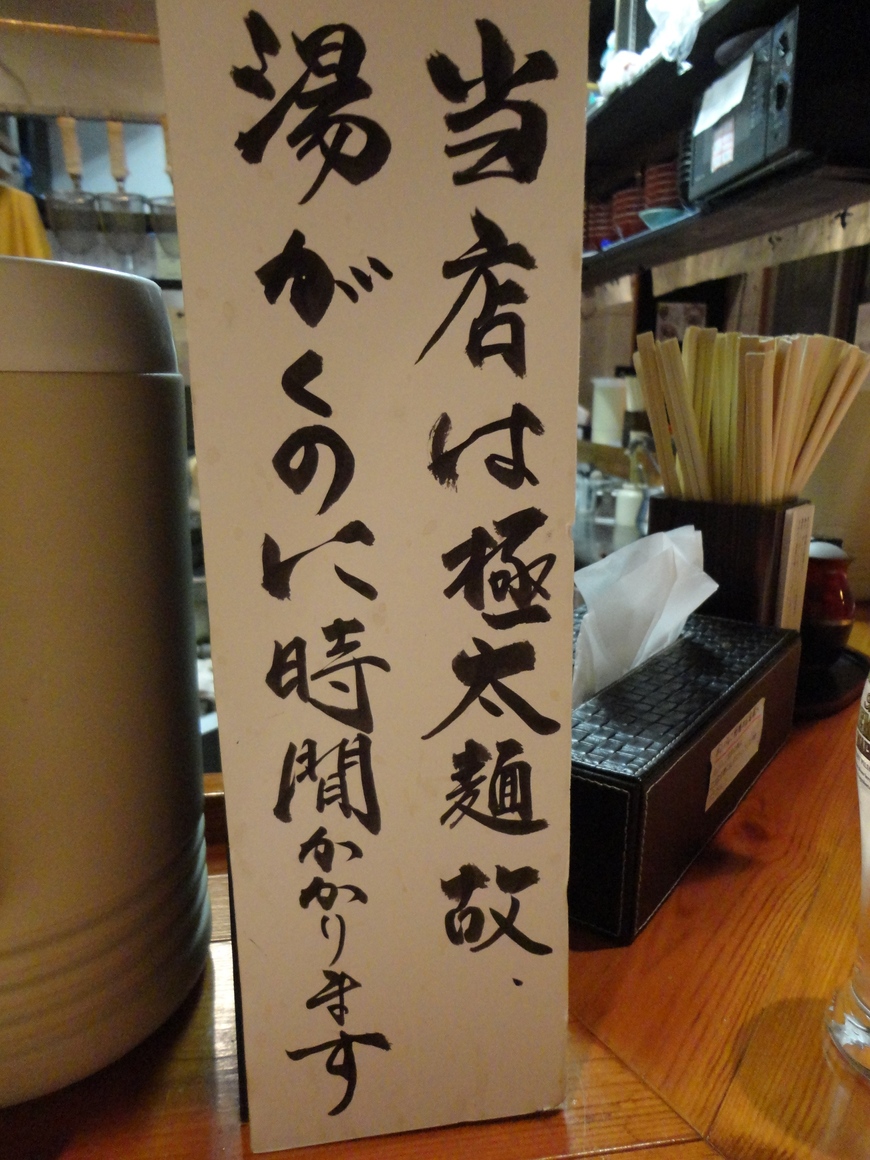 当店は極太麺故、
湯がくのに時間かかります